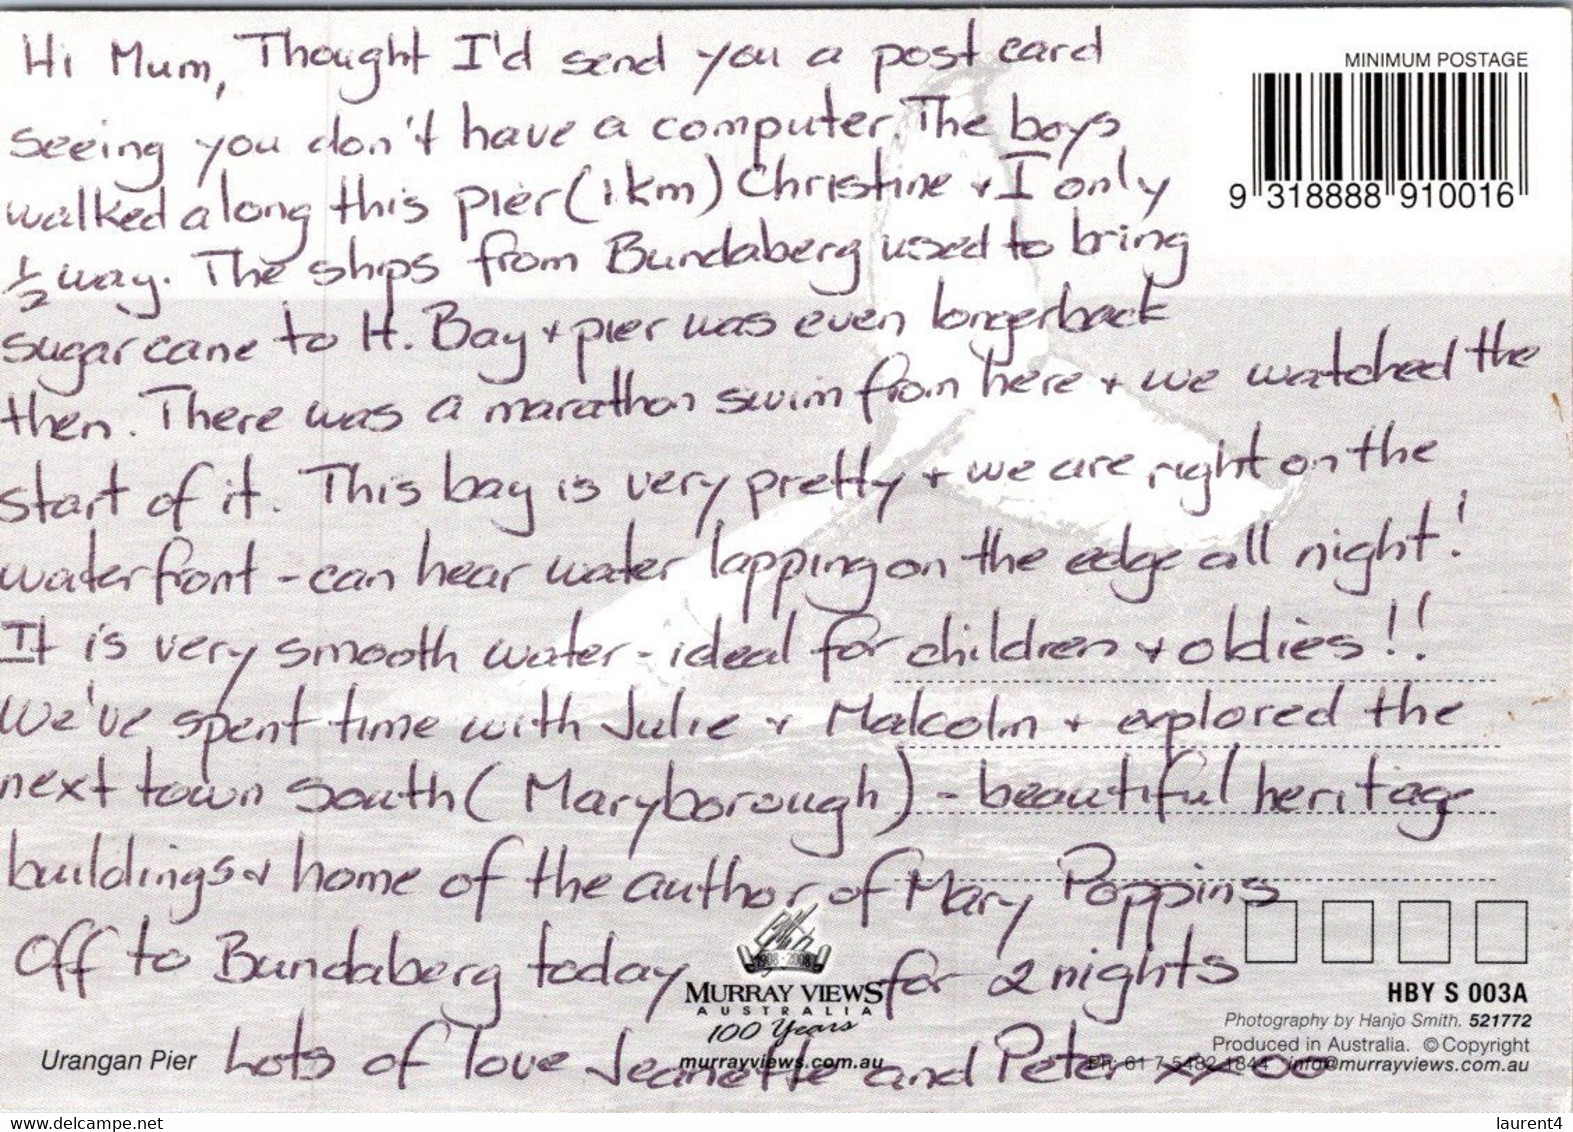 Hi Mum, Thought I'd send you a post card
MINIMUM POSTAGE
seeing you don't have a computer. The boys
walked along this pier (1km) Christine + I only
9 318888 910016
1/2 way. The ships from Bundaberg used to bring
sugar cane to H. Bay + pier was even longer back
then. There was a marathon swim from here + we watched the
start of it. This bay is very pretty + we are right on the
waterfront - can hear water lapping on the edge all night!
It is very smooth water - ideal for children + oldies!!
We've spent time with Julie + Malcolm + explored the
next town south (Maryborough) - beautiful heritage
buildings + home of the author of Mary Poppins
Off to Bundaberg today for 2 nights
1908-2008
MURRAY VIEWS
AUSTRALIA
100 Years
murrayviews.com.au
HBY S 003A
Photography by Hanjo Smith. 521772
Produced in Australia. © Copyright
Ph: 61 7 5482 1844 info@murrayviews.com.au
Urangan Pier
Lots of love Jeanette and Peter xxoo
delcampe.net
laurent4